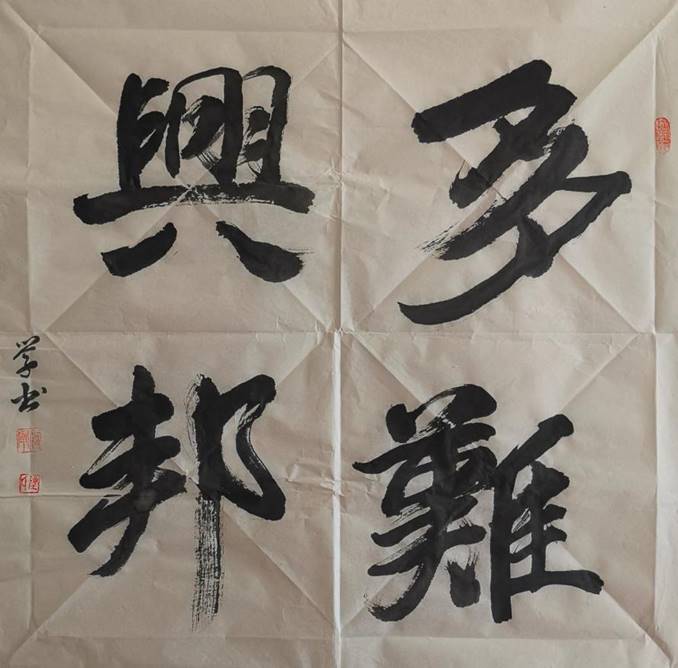 多難
興邦
学书